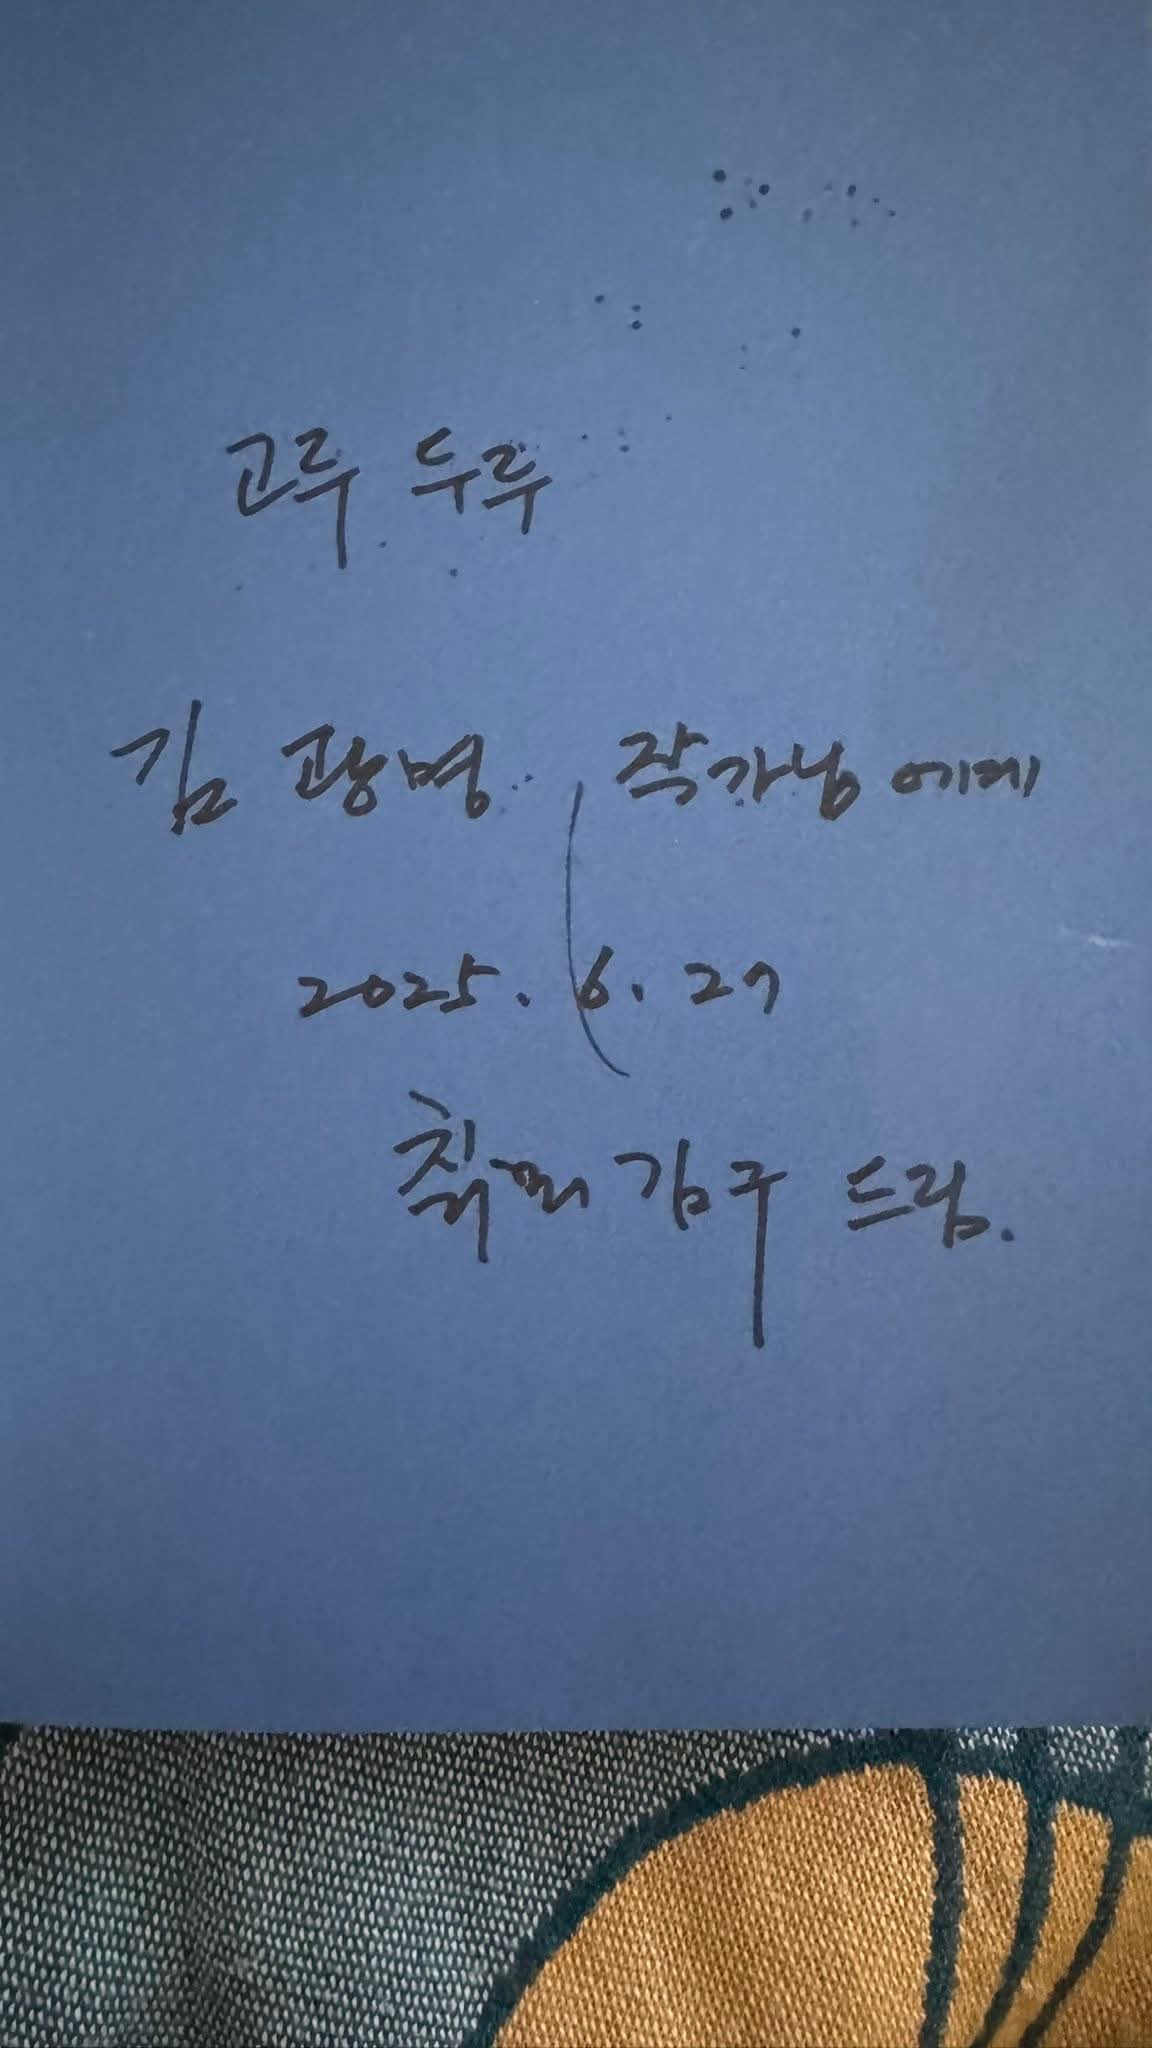 고루 두루
김 광명 작가님 에게
2025. 6. 27
김구 드림.